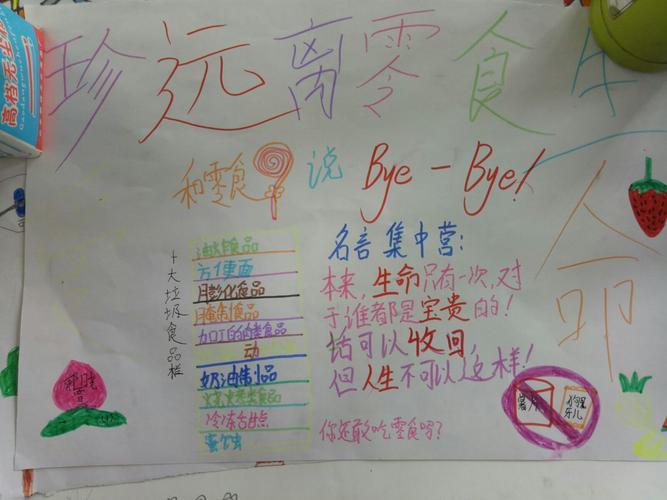 珍远离零食生
命
高档无尘
和零食说 Bye-Bye!
十大垃圾食品栏
油炸食品
方便面
膨化食品
腌制食品
加工的肉类食品
动
奶油制品
烧烤类食品
冷冻甜点
名言集中营:
本来,生命只有一次,对
于谁都是宝贵的!
话可以收回,
但人生不可以这样!
你还敢吃零食吗?
薯片